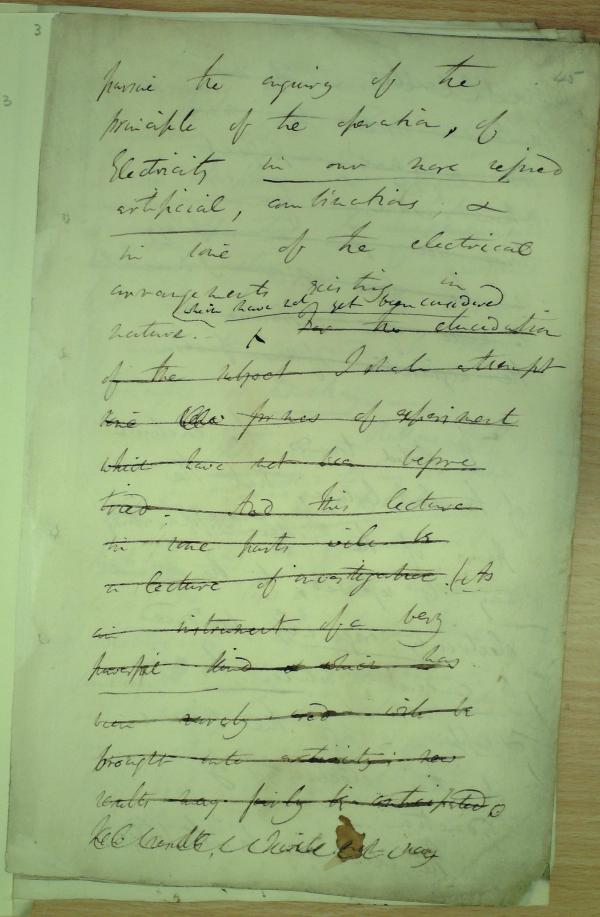 3
45
3
pursue the enquiry of the
principle of the operation, of
Electricity in our more refined
artificial, combinations, &
in some of the electrical
arrangements existing in
which have not yet been considered
nature. ^ For the elucidation
of the subject I shall attempt
some forms of experiment
which have not been before
tried. And this lecture
in some parts will be
a lecture of investigation. As
an instrument of a very
powerful kind & which has
been rarely used will be
brought into activity; new
results may fairly be anticipated.
results